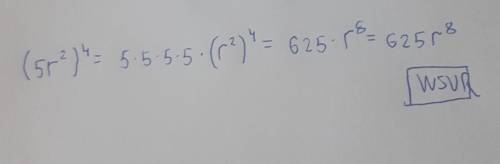 (5r²)⁴= 5·5·5·5·(r²)⁴= 625·r⁸= 625r⁸
WSVR